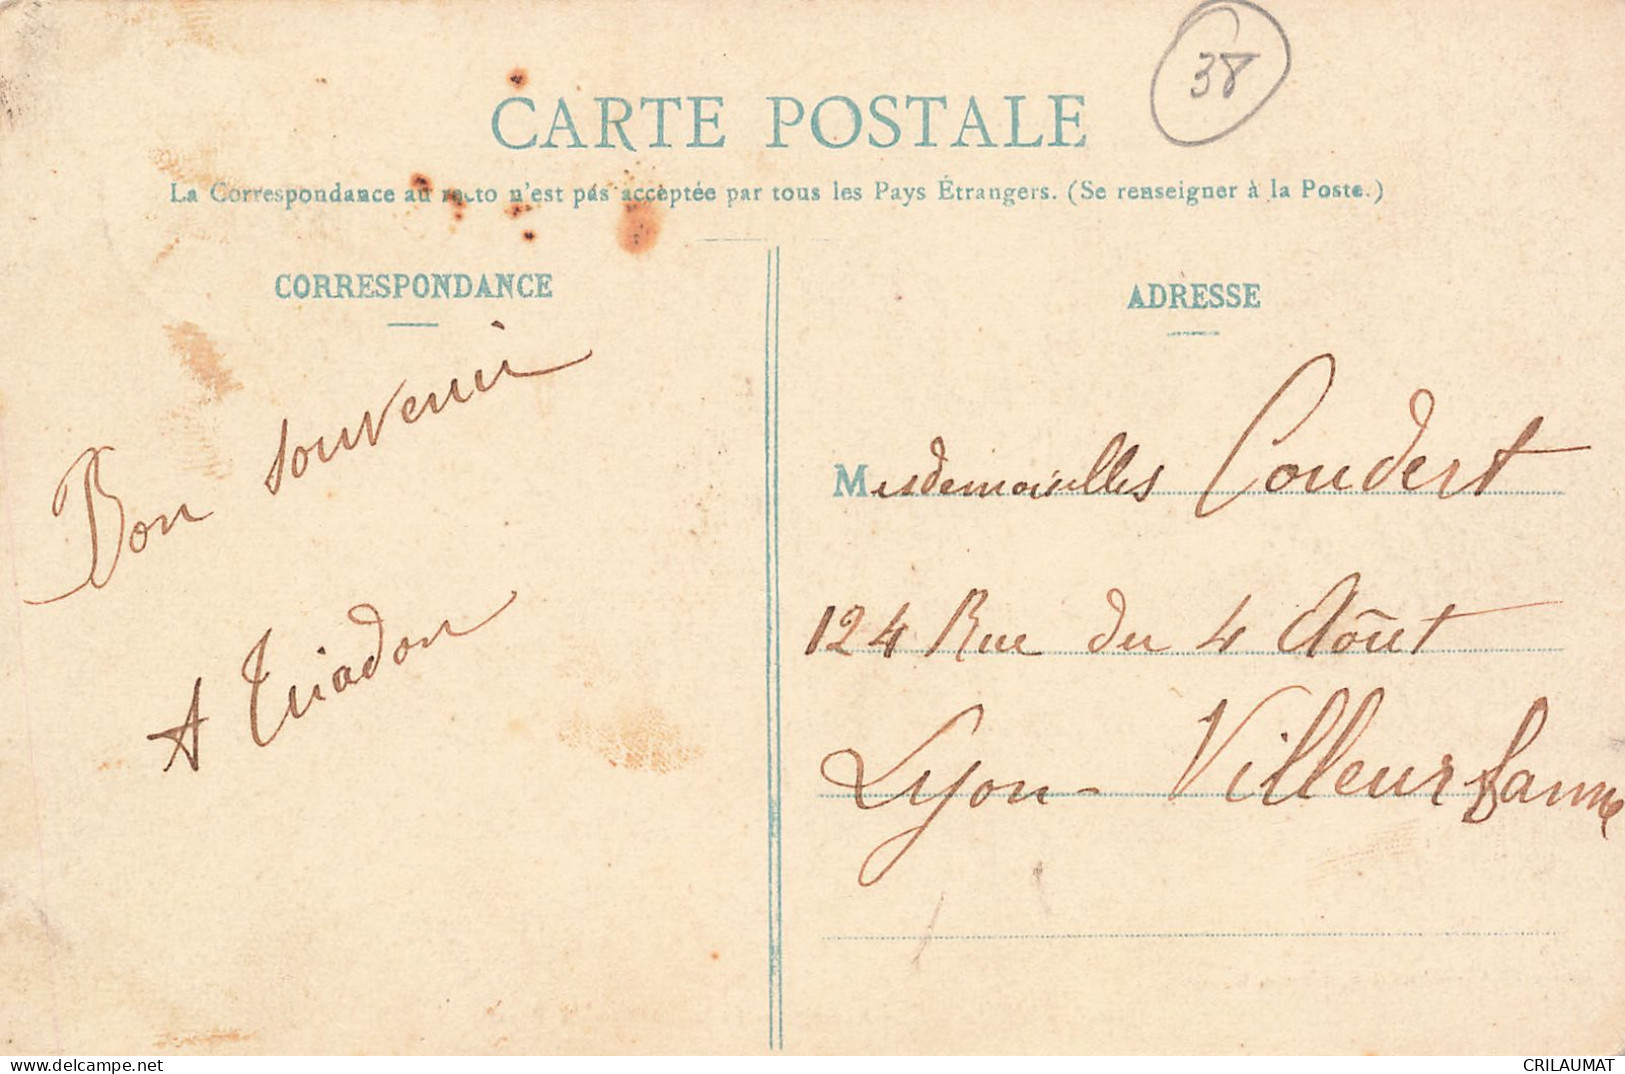 38
CARTE POSTALE
La Correspondance au recto n'est pas acceptée par tous les Pays Étrangers. (Se renseigner à la Poste.)
CORRESPONDANCE
Bon souvenir
A Triadon
ADRESSE
Mesdemoiselles Coudert
124 Rue du 4 Août
Lyon - Villeurbanne
www.delcampe.net
CRILAUMAT